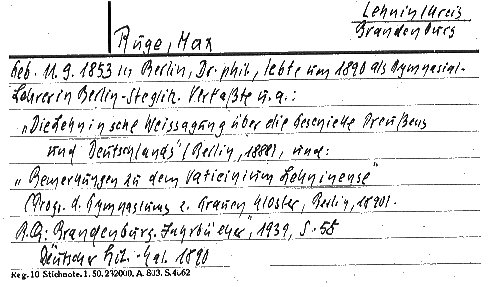 Lehnin/Kreis
Brandenburg
Ruge, Max
Geb. 11.9.1853 in Berlin, Dr. phil., lebte um 1890 als Gymnasial-
Lehrer in Berlin-Steglitz. Verfaßte u.a.:
„Die Lehninsche Weissagung über die Geschicke Preußens
und Deutschlands" (Berlin, 1888), und:
„Bemerkungen zu dem Vaticinium Lehninense"
(Progr. d. Gymnasiums z. Grauen Kloster, Berlin, 1890).
„Brandenburg. Jahrbücher", 1939, S. 58
Deutscher Lit.-Kal. 1890
Reg. 10 Stichnote. 1. 50. 232000. A. 803. S. 4062